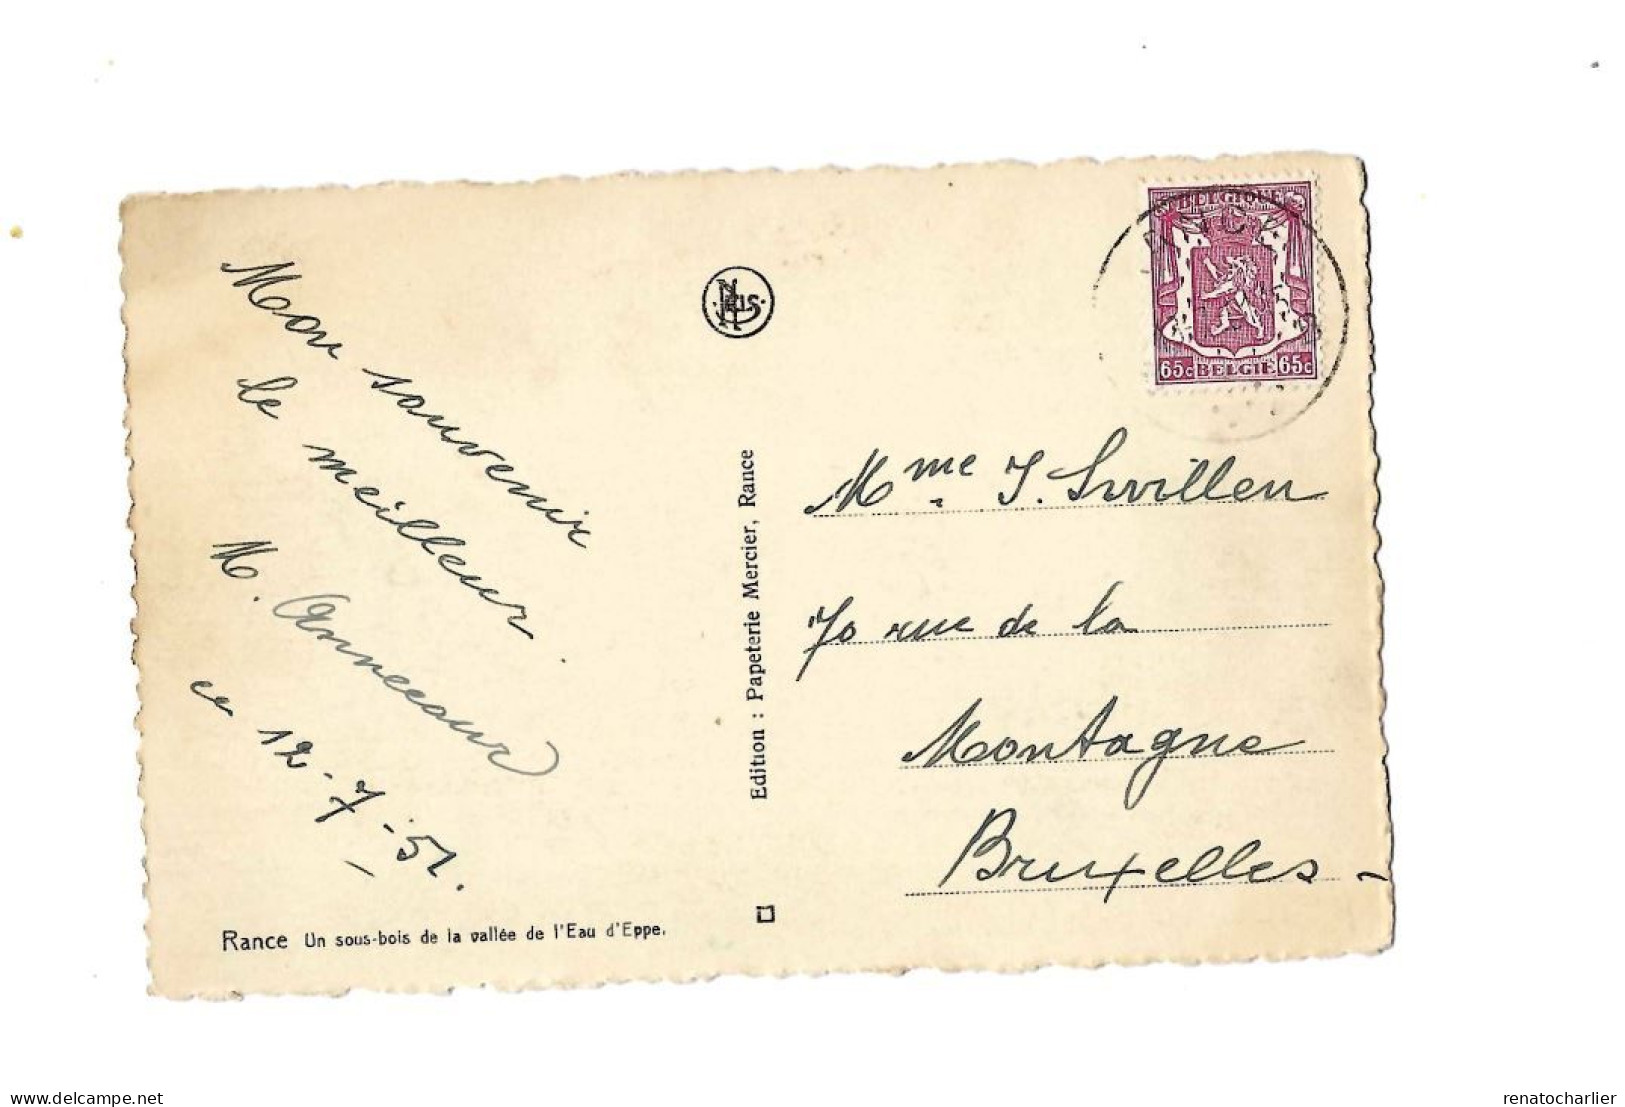 Mon souvenir
le meilleur.
M.
ce 12-7-51.
Rance Un sous-bois de la vallée de l'Eau d'Eppe.
Edition : Papeterie Mercier, Rance
BELGIQUE
65c BELGIE 65c
Mme J.
70 rue de la
Montagne
Bruxelles -
renatocharlier